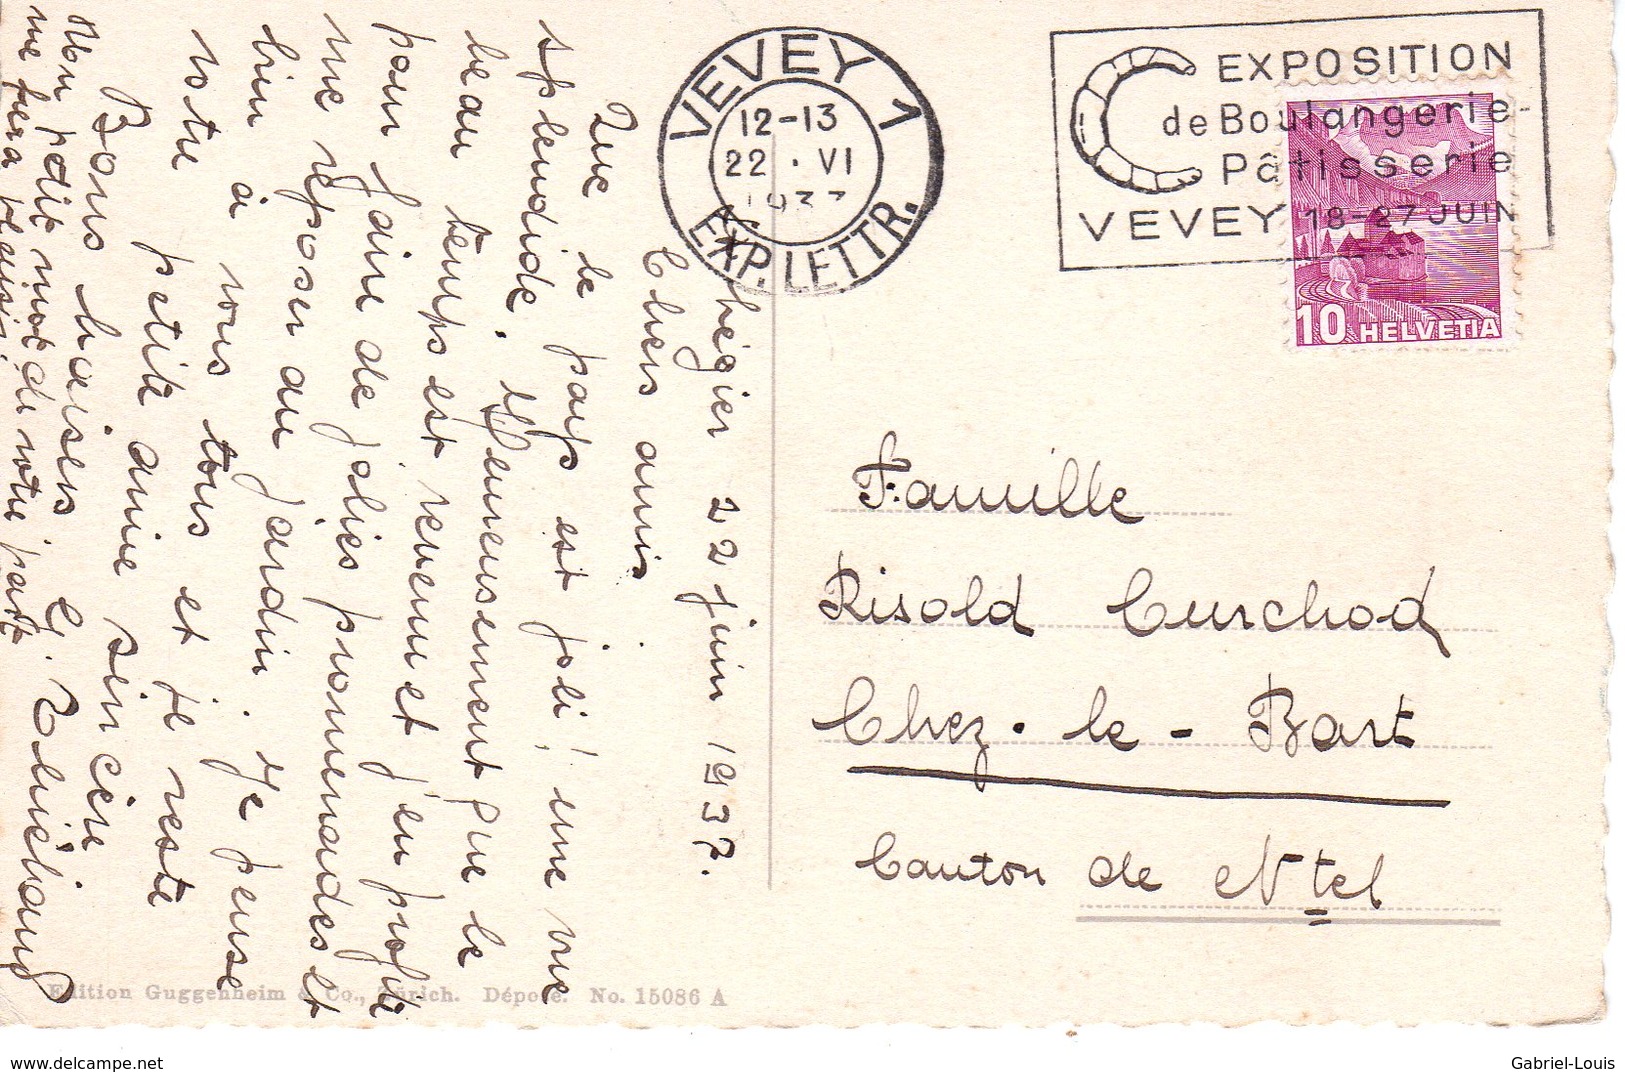 St. Légier 22 juin 1937.
Chers amis
Que le pays est joli, une vue
splendide. Heureusement que le
beau temps est revenu et j'en profite
pour faire de jolies prommenades et
me réposer au jardin. Je pense
bin à vous tous et je reste
votre petite amie sincère
Bons baisers G.
Mon petit mot de votre part
me fera plaisir
VEVEY 1
12-13
22 · VI
1937
EXP. LETTR.
EXPOSITION
de Boulangerie-
Pâtisserie
VEVEY 18-27 JUIN
10 HELVETIA
Famille
Risold Curchod
Chez-le-Bart
Canton de Ntel
Edition Guggenheim & Co., Zürich. Déposé. No. 15086 A
www.delcampe.net
Gabriel-Louis